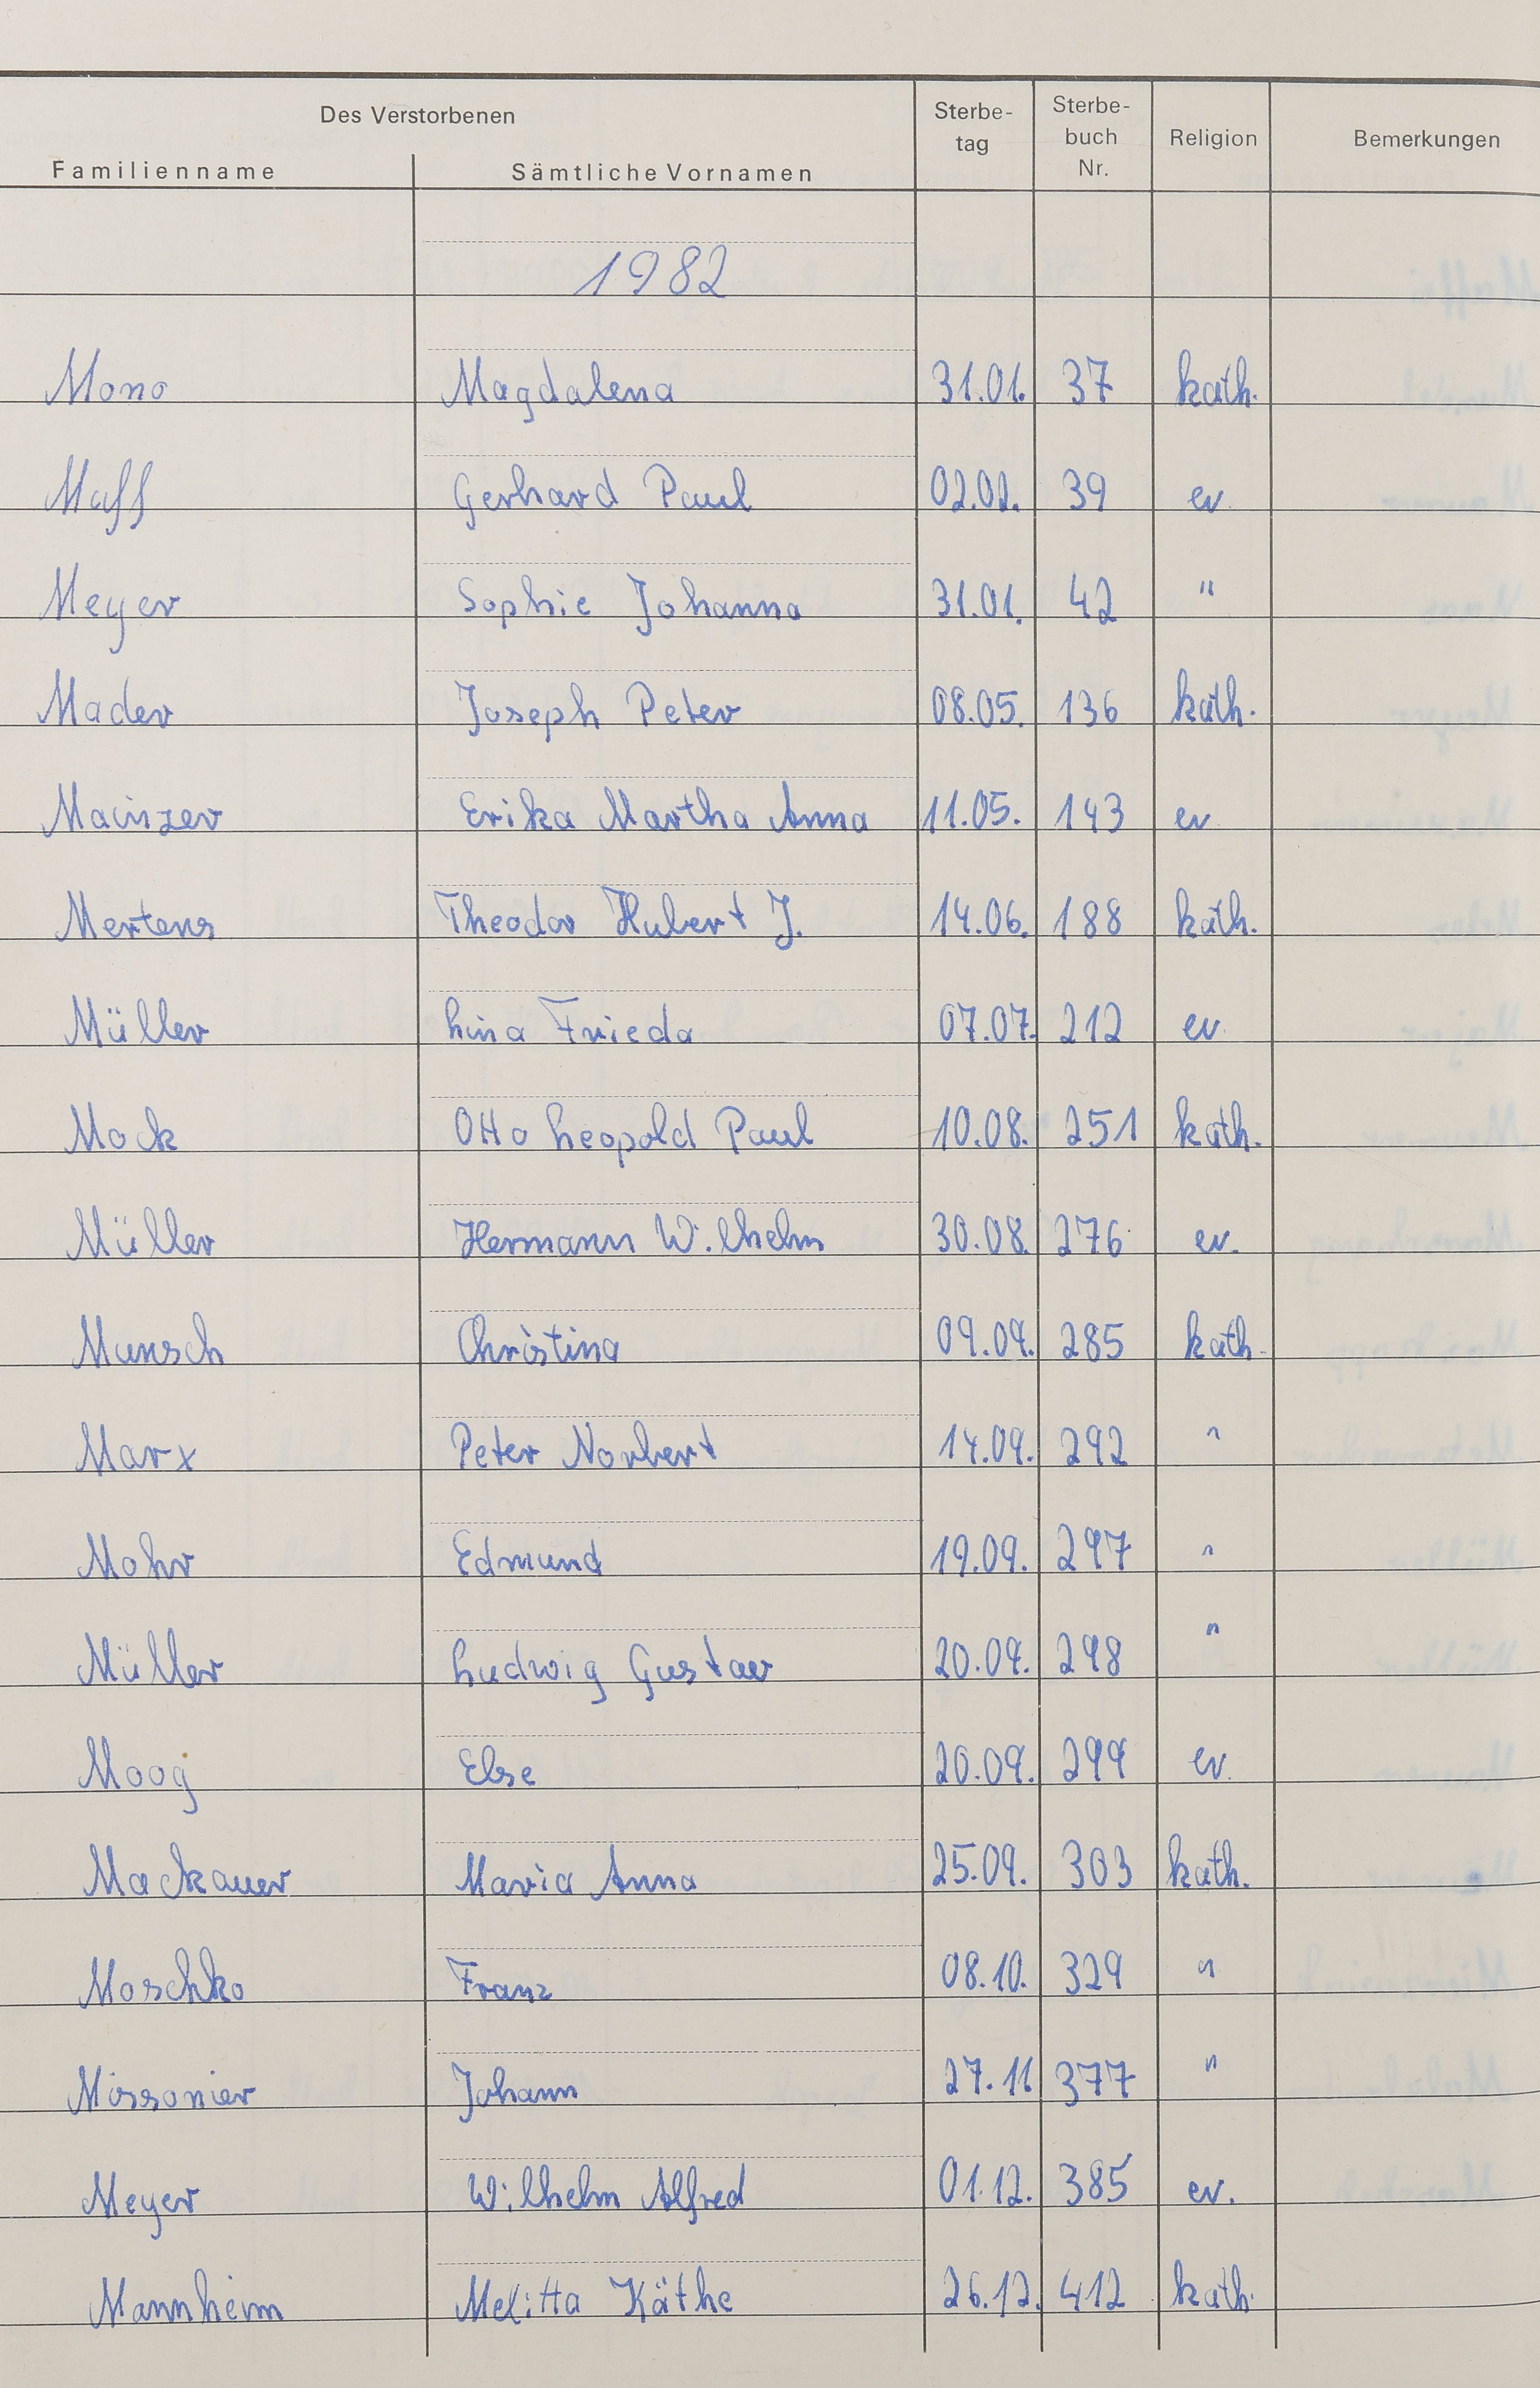 Des Verstorbenen
Familienname Sämtliche Vornamen Sterbe- tag Sterbe- buch Nr. Religion Bemerkungen
1982
Mono Magdalena 31.01. 37 kath.
Maff Gerhard Paul 02.02. 39 ev.
Meyer Sophie Johanna 31.01. 42 "
Mader Joseph Peter 08.05. 136 kath.
Mainzer Erika Martha Anna 11.05. 143 ev
Mertens Theodor Hubert J. 14.06. 188 kath.
Müller Lina Frieda 07.07. 212 ev.
Mock Otto Leopold Paul 10.08. 251 kath.
Müller Hermann Wilhelm 30.08. 276 ev.
Munsch Christina 09.09. 285 kath.
Marx Peter Norbert 14.09. 292 "
Mohr Edmund 19.09. 297 "
Müller Ludwig Gustav 20.09. 298 "
Moog Else 20.09. 299 ev.
Mackauer Maria Anna 25.09. 303 kath.
Moschko Franz 08.10. 329 "
Missonier Johann 27.11 377 "
Meyer Wilhelm Alfred 01.12. 385 ev.
Mannheim Melitta Käthe 26.12. 412 kath.